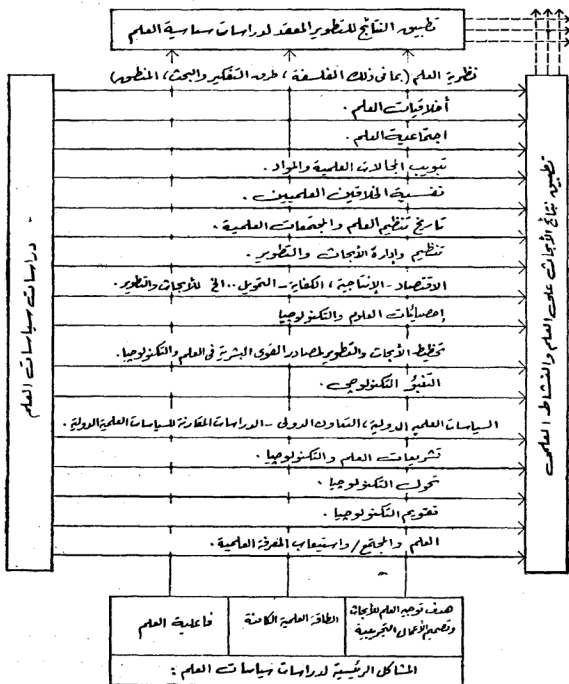 تطبيق النتائج للتطوير المعقد لدراسات سياسية العلم
نظرية العلم (بما في ذلك الفلسفة ، طرق التفكير والبحث ، المنطق)
أخلاقيات العلم .
اجتماعية العلم .
تبويب المجالات العلمية والمواد .
نفسية الخلاقين العلميين .
تاريخ تنظيم العلم والمجتمعات العلمية .
تنظيم وإدارة الأبحاث والتطوير .
الاقتصاد - الإنتاجية ، الكفاية - التمويل .. الخ للأبحاث والتطوير .
إحصائيات العلوم والتكنولوجيا
تخطيط الأبحاث والتطوير لمصادر القوى البشرية في العلم والتكنولوجيا .
التنبؤ التكنولوجي .
السياسات العلمية الدولية ، التعاون الدولى - الدراسات المقارنة للسياسات العلمية الدولية .
تشريعات العلم والتكنولوجيا .
تحول التكنولوجيا .
تقويم التكنولوجيا .
العلم والمجتمع / واستيعاب المعرفة العلمية .
تطبيق نتائج الأبحاث على العلم والنشاط العلمى
دراسات سياسات العلم
هدف توجيه العلم للأبحاث
وتصميم الأعمال التجريبية
الطاقة العلمية الكامنة
فاعلية العلم
المشاكل الرئيسية لدراسات سياسات العلم :